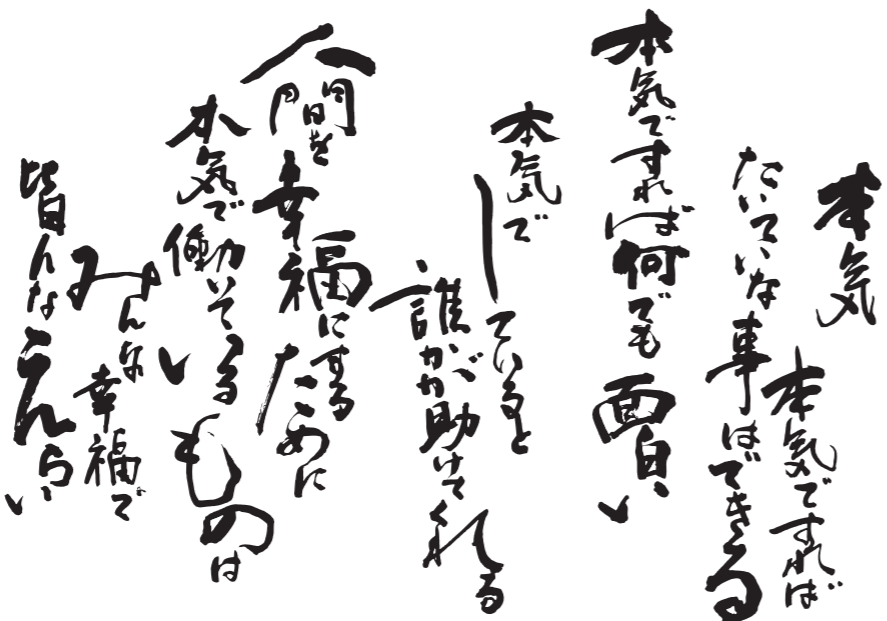 本気
本気ですれば
たいていな事はできる
本気ですれば何でも面白い
本気でしていると
誰かが助けてくれる
人間を幸福にするために
本気で働いているものは
みんな幸福で
皆んなえらい